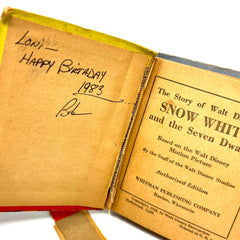 Loni—
Happy Birthday
1983
The Story of Walt D
SNOW WHIT
and the Seven Dwa
Based on the Walt Disney
Motion Picture
By the Staff of the Walt Disney Studios
Authorized Edition
WHITMAN PUBLISHING COMPANY
Racine, Wisconsin